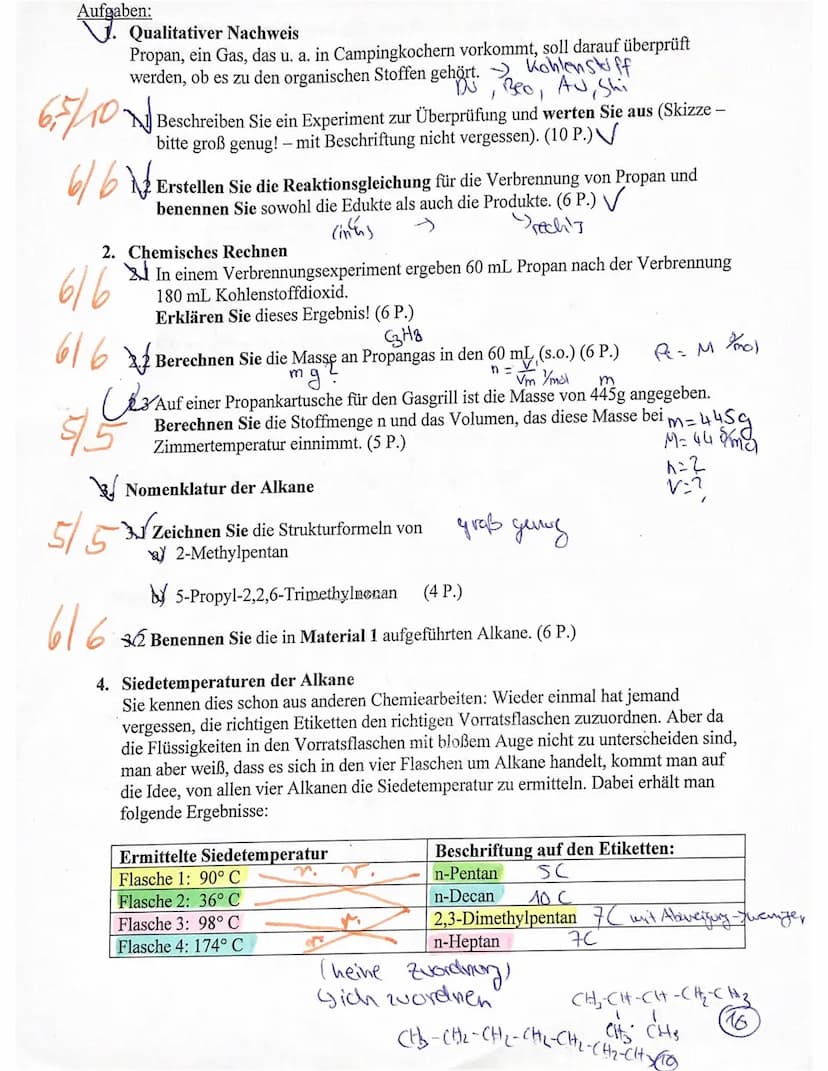 Aufgaben:
1. Qualitativer Nachweis
Propan, ein Gas, das u. a. in Campingkochern vorkommt, soll darauf überprüft
werden, ob es zu den organischen Stoffen gehört. → Kohlenstoff
DU, Beo, AU, Ski
6,5/10 1.1 Beschreiben Sie ein Experiment zur Überprüfung und werten Sie aus (Skizze –
bitte groß genug! – mit Beschriftung nicht vergessen). (10 P.) ✓
6/6 1.2 Erstellen Sie die Reaktionsgleichung für die Verbrennung von Propan und
benennen Sie sowohl die Edukte als auch die Produkte. (6 P.) ✓
(links) → rechts
2. Chemisches Rechnen
6/6 2.1 In einem Verbrennungsexperiment ergeben 60 mL Propan nach der Verbrennung
180 mL Kohlenstoffdioxid.
Erklären Sie dieses Ergebnis! (6 P.)
C3H8
6/6 2.2 Berechnen Sie die Masse an Propangas in den 60 mL (s.o.) (6 P.) = M g/mol
m g ? n = V/Vm l/mol m
2.3 Auf einer Propankartusche für den Gasgrill ist die Masse von 445g angegeben.
5/5 Berechnen Sie die Stoffmenge n und das Volumen, das diese Masse bei m=445g
Zimmertemperatur einnimmt. (5 P.) M=44 g/mol
n=?
V=?
3. Nomenklatur der Alkane
5/5 3.1 Zeichnen Sie die Strukturformeln von groß genug
a) 2-Methylpentan
b) 5-Propyl-2,2,6-Trimethylnonan (4 P.)
6/6 3.2 Benennen Sie die in Material 1 aufgeführten Alkane. (6 P.)
4. Siedetemperaturen der Alkane
Sie kennen dies schon aus anderen Chemiearbeiten: Wieder einmal hat jemand
vergessen, die richtigen Etiketten den richtigen Vorratsflaschen zuzuordnen. Aber da
die Flüssigkeiten in den Vorratsflaschen mit bloßem Auge nicht zu unterscheiden sind,
man aber weiß, dass es sich in den vier Flaschen um Alkane handelt, kommt man auf
die Idee, von allen vier Alkanen die Siedetemperatur zu ermitteln. Dabei erhält man
folgende Ergebnisse:
Ermittelte Siedetemperatur Beschriftung auf den Etiketten:
Flasche 1: 90° C r. r. n-Pentan 5C
Flasche 2: 36° C n-Decan 10 C
Flasche 3: 98° C r. 2,3-Dimethylpentan 7C mit Abzweigung → weniger
Flasche 4: 174° C r. n-Heptan 7C
(keine Zuordnung)
↳ich zuordnen
CH3-CH-CH-CH2-CH3
CH3 CH3 16
CH3-CH2-CH2-CH2-CH2-CH2-CH3